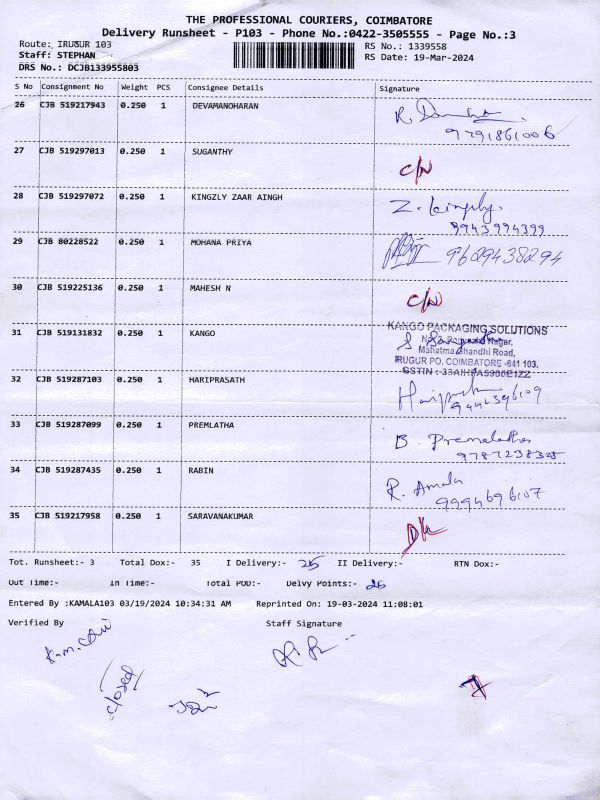 THE PROFESSIONAL COURIERS, COIMBATORE
Delivery Runsheet - P103 - Phone No.:0422-3505555 - Page No.:3
Route: IRUGUR 103
RS No.: 1339558
Staff: STEPHAN
RS Date: 19-Mar-2024
DRS No.: DCJB133955803
S No Consignment No Weight PCS Consignee Details Signature
26 CJB 519217943 0.250 1 DEVAMANOHARAN
9791861006
27 CJB 519297013 0.250 1 SUGANTHY C/N
28 CJB 519297072 0.250 1 KINGZLY ZAAR AINGH Z. Kingsly.
9943994399
29 CJB 80228522 0.250 1 MOHANA PRIYA 9629438294
30 CJB 519225136 0.250 1 MAHESH N C/N
31 CJB 519131832 0.250 1 KANGO KANGO PACKAGING SOLUTIONS
Mahatma Ghandhi Road,
IRUGUR PO, COIMBATORE -641 103.
32 CJB 519287103 0.250 1 HARIPRASATH
33 CJB 519287099 0.250 1 PREMLATHA B. Premalatha
34 CJB 519287435 0.250 1 RABIN R. Amala
9994696107
35 CJB 519217958 0.250 1 SARAVANAKUMAR D/L
Tot. Runsheet:- 3 Total Dox:- 35 I Delivery:- 25 II Delivery:- RTN Dox:-
Out Time:- In Time:- Total POD:- Delvy Points:- 25
Entered By :KAMALA103 03/19/2024 10:34:31 AM Reprinted On: 19-03-2024 11:08:01
Verified By Staff Signature
closed